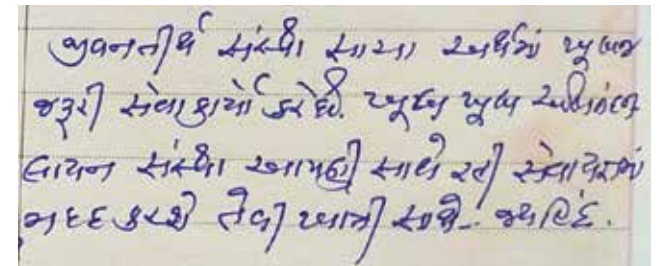 જીવનતીર્થ સંસ્થા સાચા અર્થમાં ખુબજ
જરૂરી સેવાકાર્યો કરે છે. ખૂબ ખૂબ અભિનંદન
લાયન સંસ્થા આપની સાથે રહી સેવાયજ્ઞમાં
મદદ કરશે તેવી ખાત્રી સાથે.. જયહિંદ.